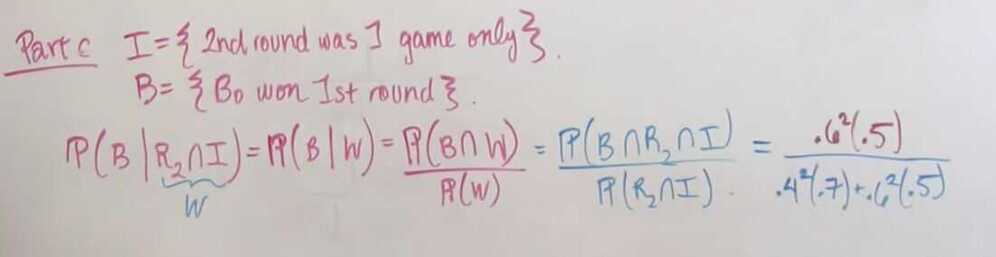 Part c I = { 2nd round was 1 game only }.
B = { Bo won 1st round }.
P(B | R₂∩I) = P(B | W) = P(B∩W) / P(W) = P(B∩R₂∩I) / P(R₂∩I). = .6²(.5) / .4²(.7)+.6²(.5)
W